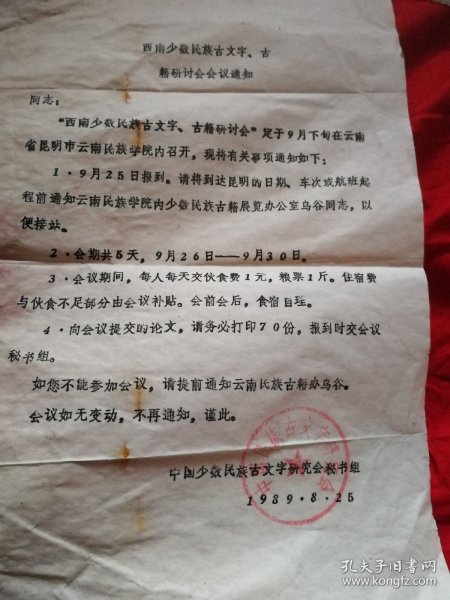 西南少数民族古文字、古
籍研讨会会议通知
同志：
“西南少数民族古文字、古籍研讨会”定于9月下旬在云南
省昆明市云南民族学院内召开，现将有关事项通知如下：
1·9月25日报到。请将到达昆明的日期、车次或航班起
程前通知云南民族学院内少数民族古籍展览办公室乌谷同志，以
便接站。
2·会期共5天，9月26日——9月30日。
3·会议期间，每人每天交伙食费1元，粮票1斤。住宿费
与伙食不足部分由会议补贴。会前会后，食宿自理。
4·向会议提交的论文，请务必打印70份，报到时交会议
秘书组。
如您不能参加会议，请提前通知云南民族古籍办乌谷。
会议如无变动，不再通知，谨此。
中国少数民族古文字研究会秘书组
1989·8·25
孔夫子旧书网
www.kongfz.com